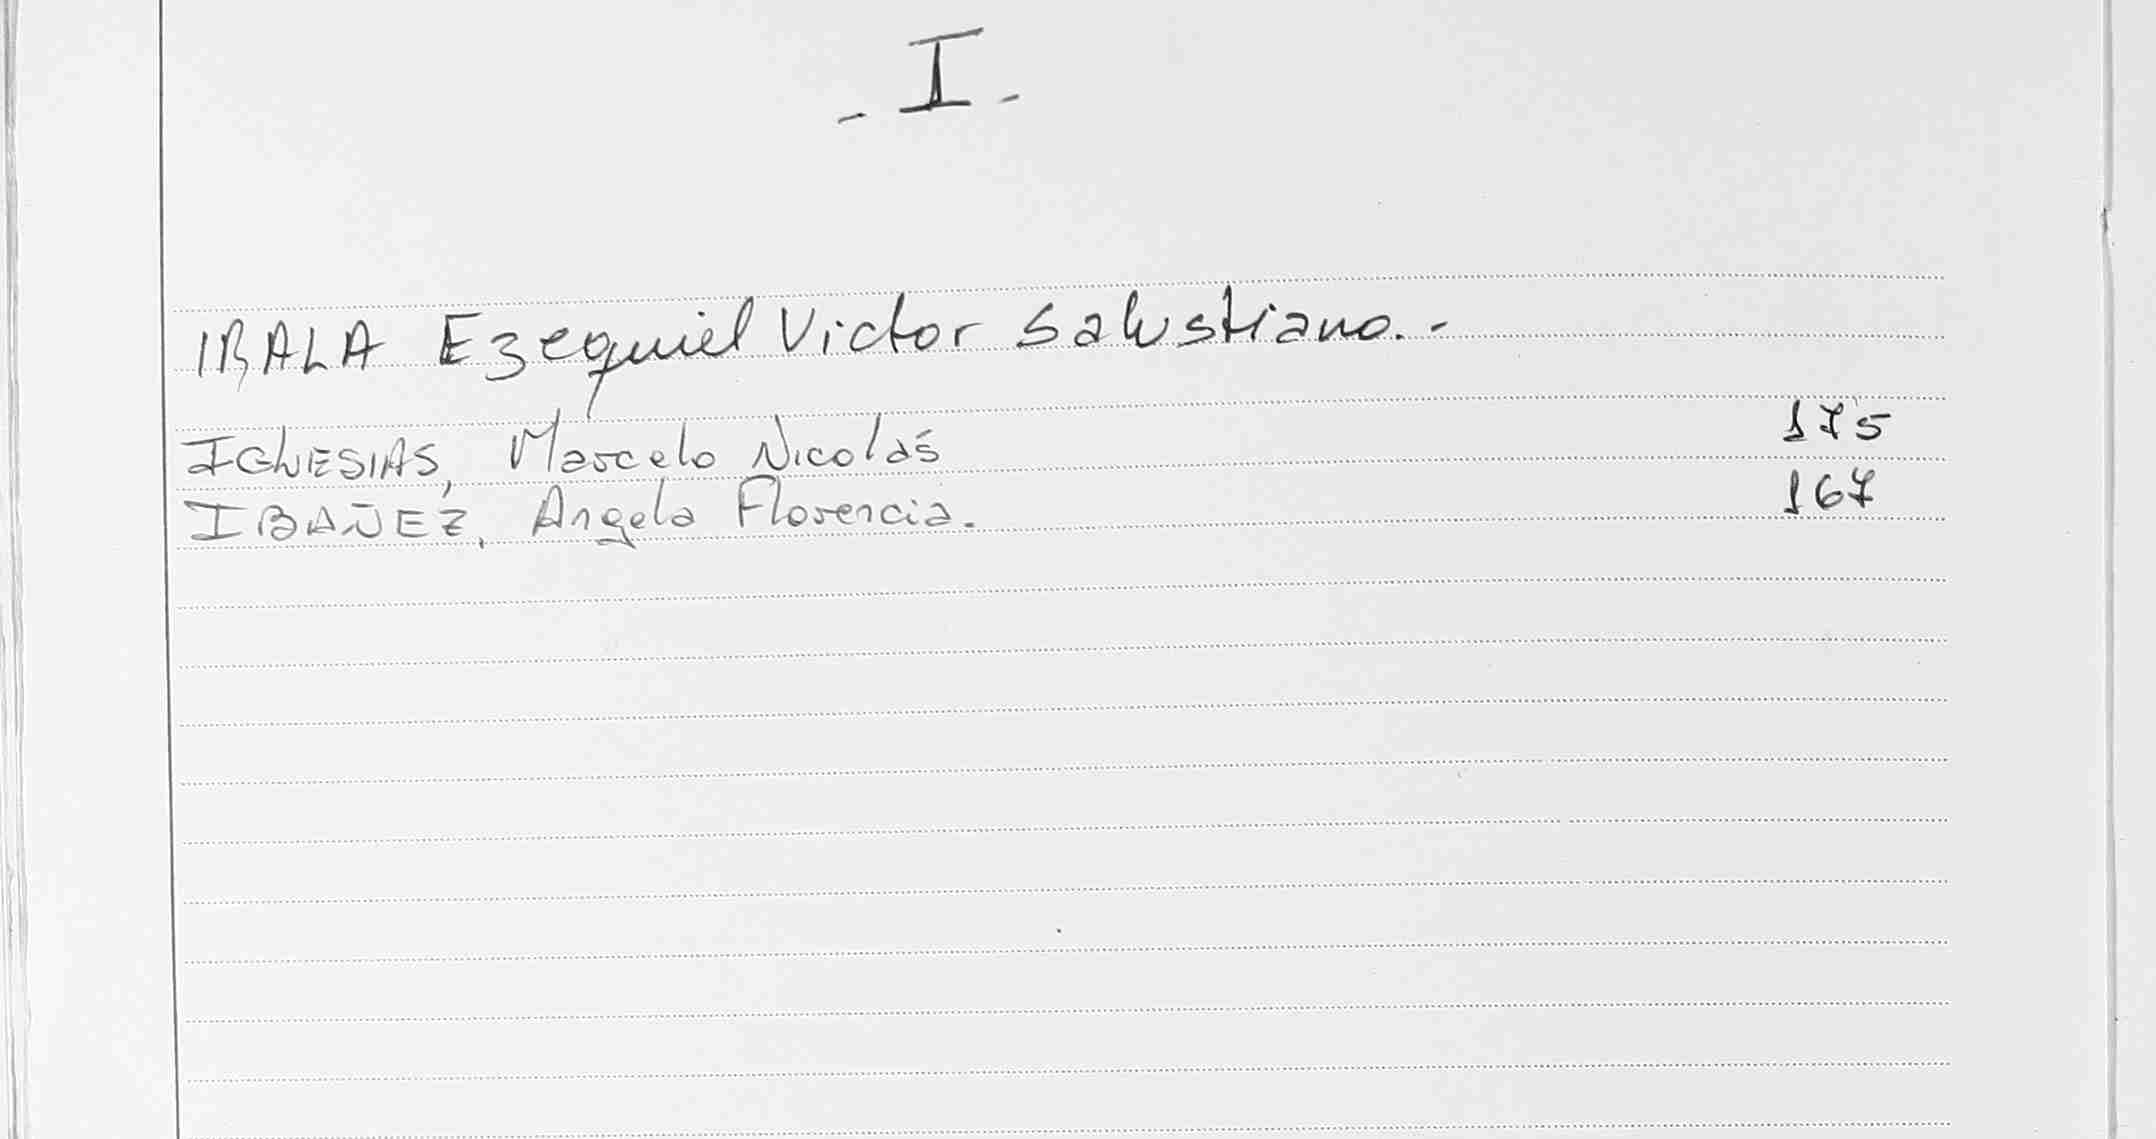 - I -
IBALA Ezequiel Victor Salustiano.-
IGLESIAS, Marcelo Nicolás 175
IBAÑEZ, Angela Florencia. 167